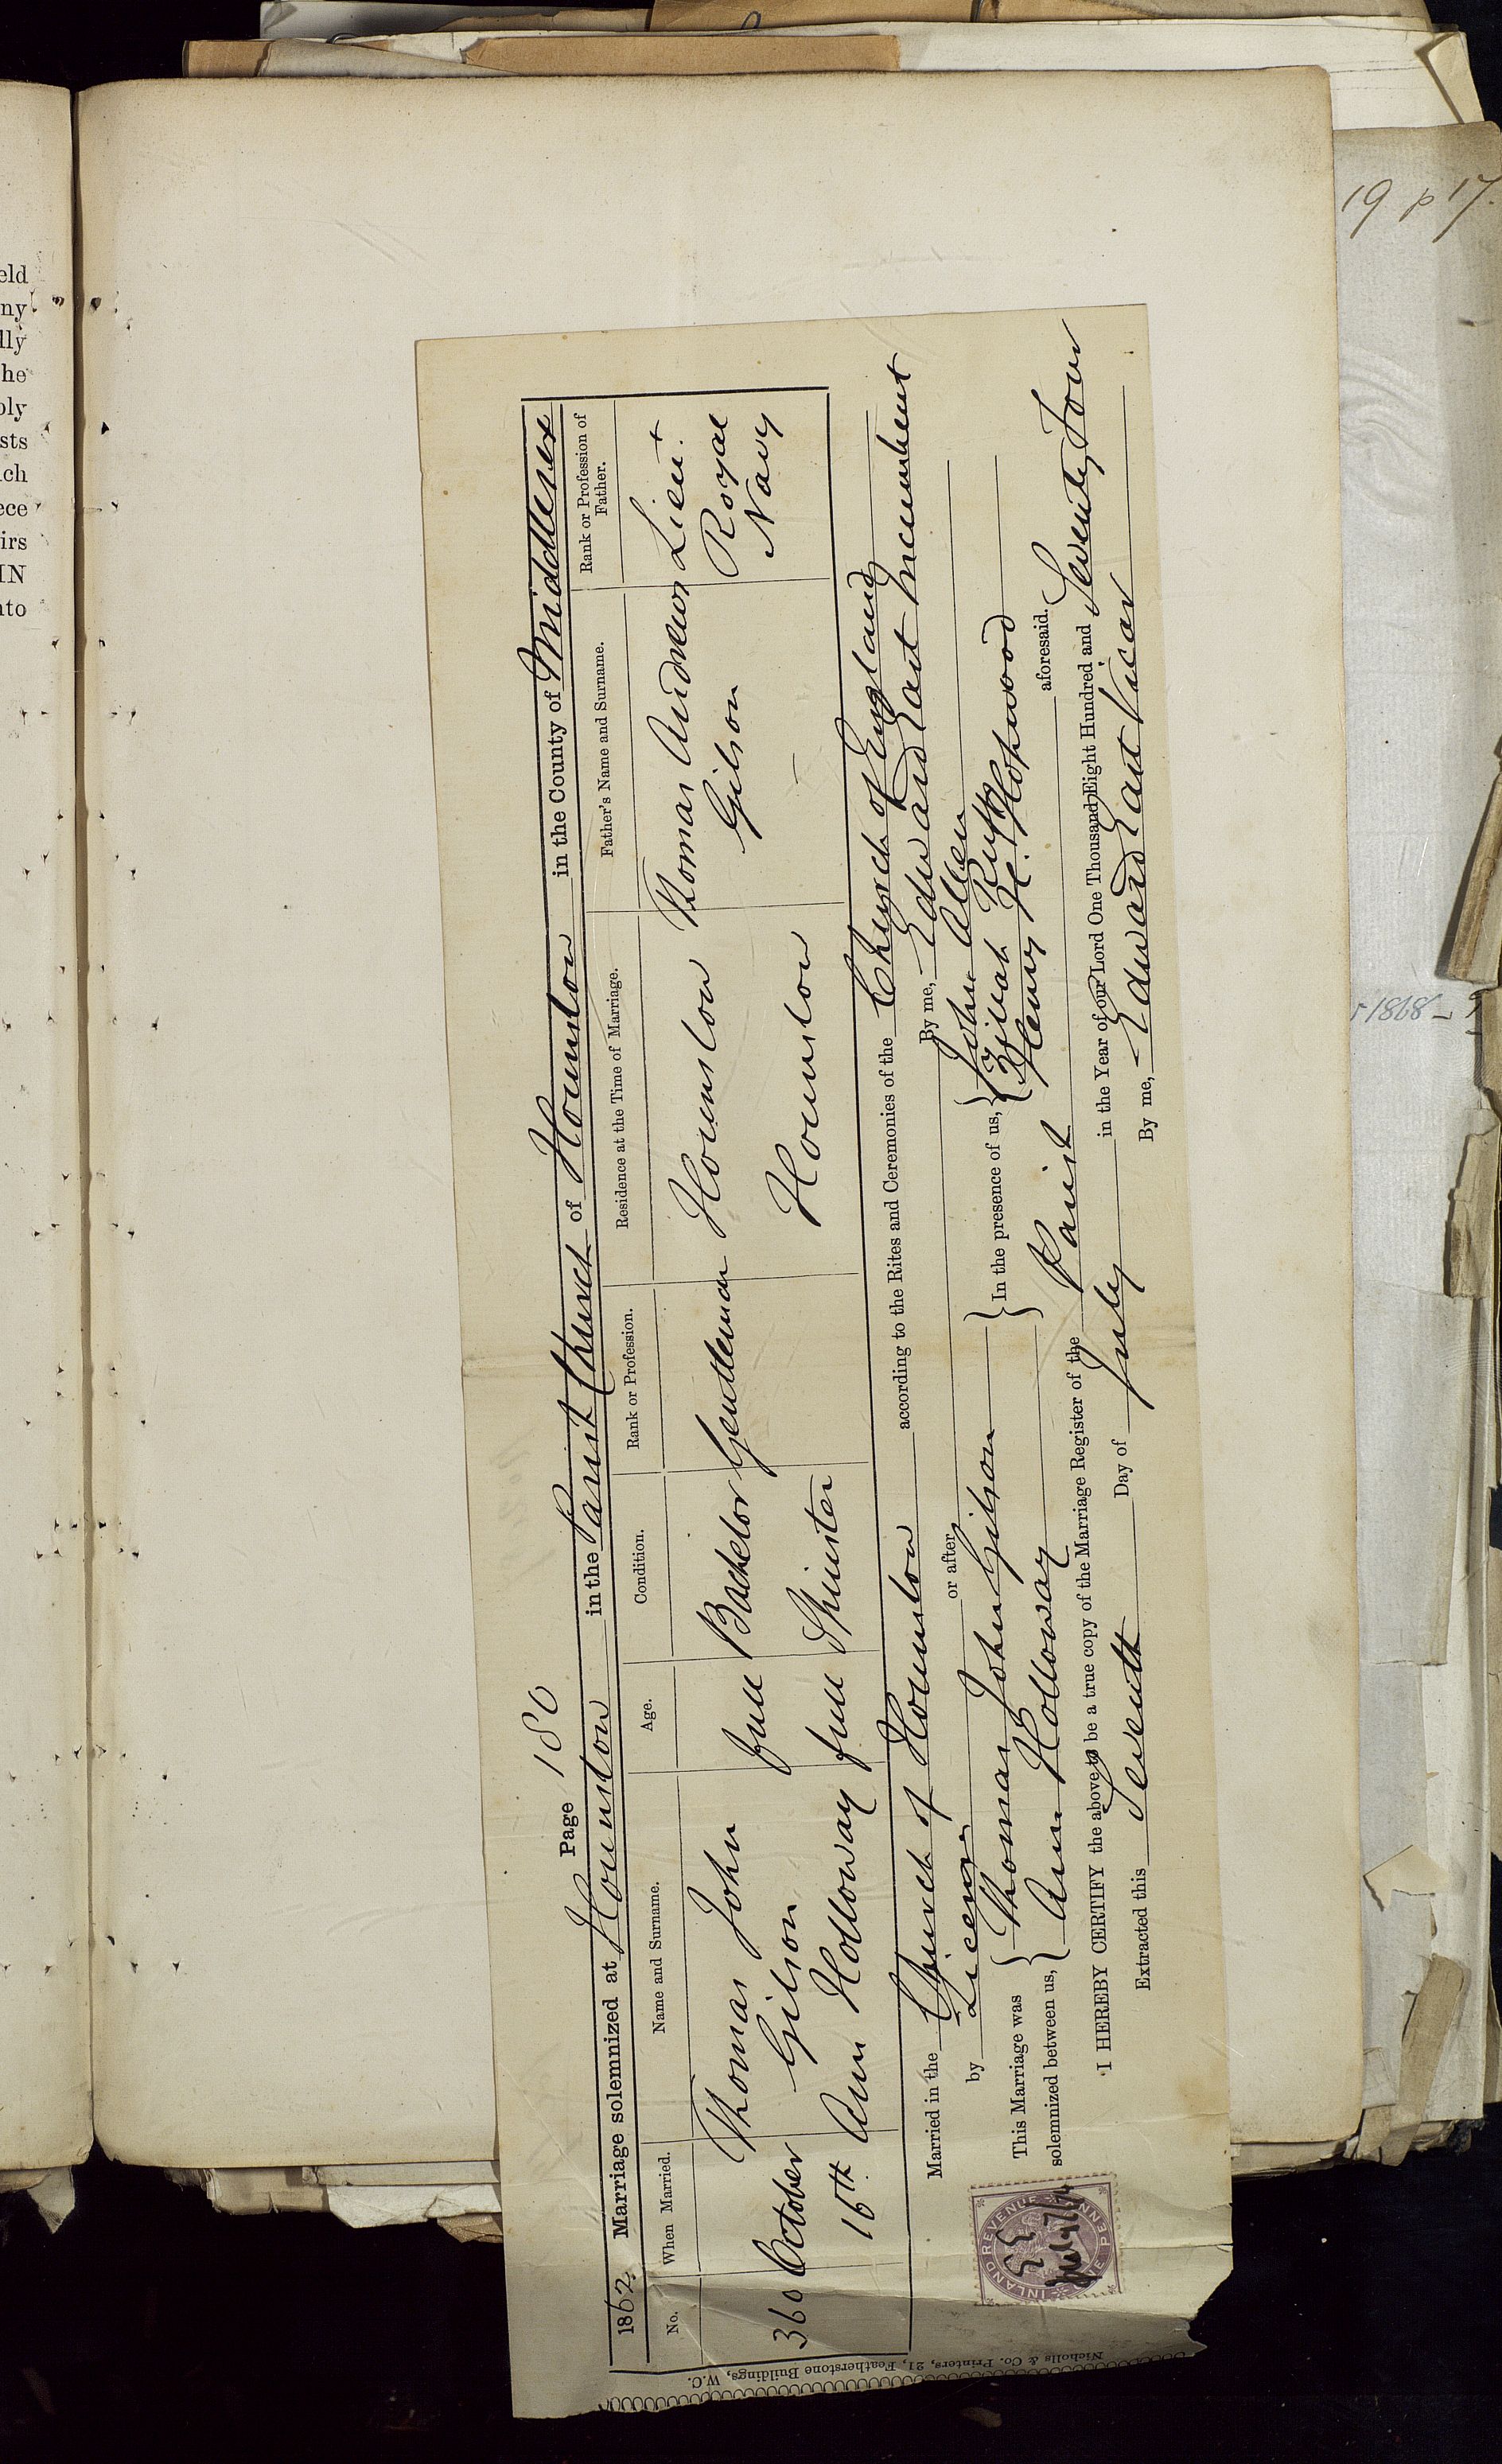 Page 180
1862. Marriage solemnized at Hounslow in the Parish Church of Hounslow in the County of Middlesex
No. When Married. Name and Surname. Age. Condition. Rank or Profession. Residence at the Time of Marriage. Father's Name and Surname. Rank or Profession of Father.
360 October 16th Thomas John Gilson full Bachelor Gentleman Hounslow Thomas Andrews Gilson Lieut. Royal Navy
Ann Holloway full Spinster Hounslow —
Married in the Church of Hounslow according to the Rites and Ceremonies of the Church of England
by Licence or after By me, Edward East Incumbent
This Marriage was solemnized between us, { Thomas John Gilson
Ann Holloway } In the presence of us, { John Allen
Zillah Ruff
Henry H. Hopwood
I HEREBY CERTIFY the above to be a true copy of the Marriage Register of the Parish aforesaid.
Extracted this Seventh Day of July in the Year of our Lord One Thousand Eight Hundred and Seventy Four
By me, Edward East Vicar
INLAND REVENUE ONE PENNY
Nicholls & Co. Printers, 21, Featherstone Buildings, W.C.
19 p 17.
1868
eld
ny
lly
he
ply
sts
ch
ece
irs
IN
nto